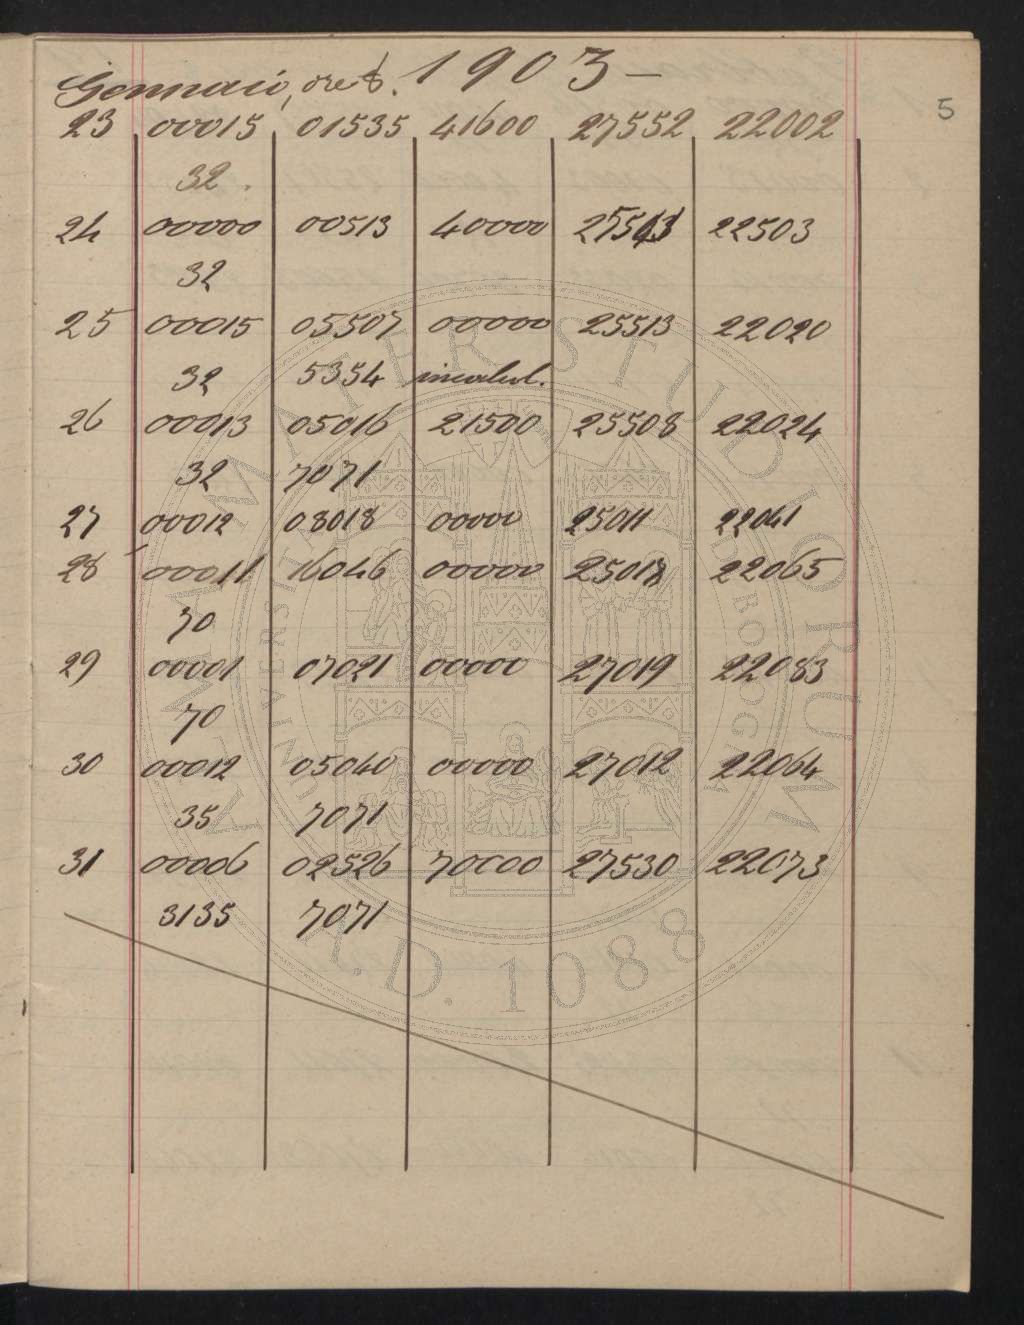 Gennaio, ore 8. 1903 —
5
23 00015 01535 41600 27552 22002
32.
24 00000 00513 40000 22503
32
25 00015 05507 00000 25513 22020
32 5354 incalcol.
26 00013 05016 21500 25508 22024
32 7071
27 00012 08018 00000 25011 22041
28 00011 16046 00000 25018 22065
70
29 00001 07021 00000 27019 22083
70
30 00012 05040 00000 27012 22064
35 7071
31 00006 02526 70000 27530 22073
3135 7071
ALMA MATER STUDIORUM
UNIVERSITAS BONONIENSIS
A.D. 1088